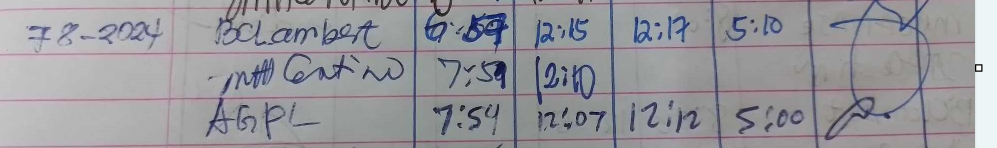 7 8-2024 BCLambert 6:59 12:15 12:17 5:10
Centino 7:59 12:10
AGPL 7:54 12:07 12:12 5:00